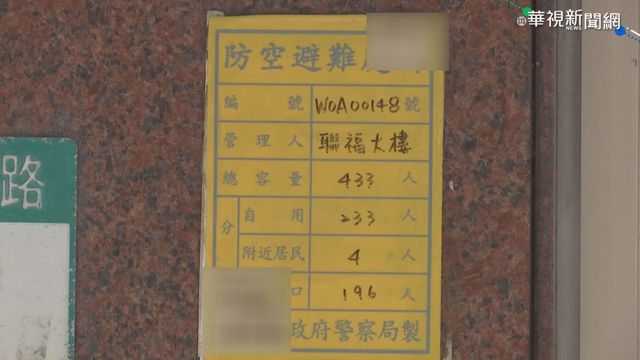 華視新聞網
NEWS
防空避難
編號 W0A00148號
管理人 聯福大樓
總容量 433 人
分 自用 233 人
附近居民 4 人
口 196 人
政府警察局製
路